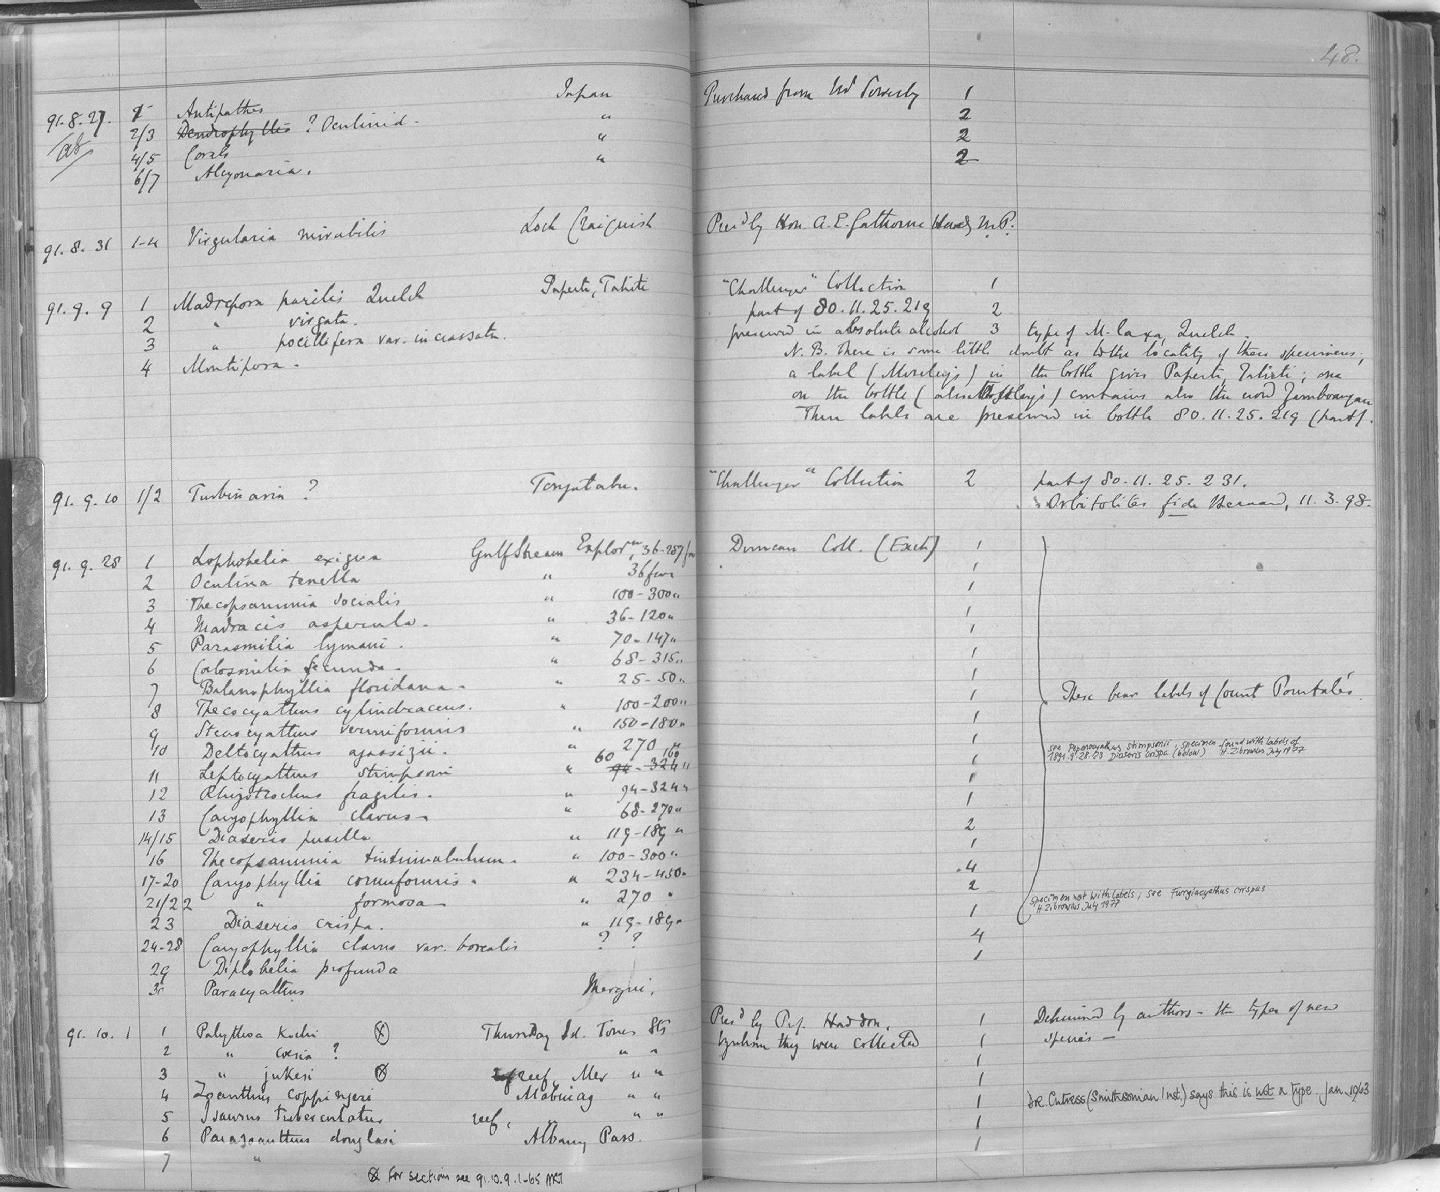 48.
91.8.27. 1 Antipathes Japan Purchased from Mr Sowerby 1
2/3 Dendrophyllia ? Oculinid. " 2
4/5 Corals " 2
6/7 Alcyonaria. " 2
91.8.31 1-4 Virgularia mirabilis Loch Craignish Pres'd by Hon. A. E. Gathorne Hardy M.P.
91.9.9 1 Madrepora parilis Quelch Papeete, Tahiti "Challenger" Collection 1
2 " virgata. part of 80.11.25.219 2
3 " pocillifera var. incrassata. preserved in absolute alcohol 3 type of M. laxa, Quelch.
4 Montipora. N.B. There is some little doubt as to the locality of these specimens;
a label (Moseley's) in the bottle gives Papeete, Tahiti; one
on the bottle (also Moseley's) contains also the word Zamboangan
These labels are preserved in bottle 80.11.25.219 (part).
91.9.10 1/2 Turbinaria ? Tongatabu. "Challenger" Collection 2 part of 80.11.25.231.
Orbitolites fide Bernard, 11.3.98.
91.9.28 1 Lophohelia exigua Gulf Stream Explorn, 36-287 fm Duncan Coll. (Exch) 1
2 Oculina tenella " 36 fms 1
3 Thecopsammia socialis " 100-300 " 1
4 Madracis asperula. " 36-120 " 1
5 Parasmilia lymani. " 70-147 " 1
6 Coelosmilia fecunda. " 68-315 " 1
7 Balanophyllia floridana. " 25-50 " 1 These bear labels of Count Pourtalès.
8 Thecocyathus cylindraceus. " 100-200 " 1
9 Stenocyathus vermiformis " 150-180 " 1
10 Deltocyathus agassizii. " 270 " 1 see Peponocyathus stimpsonii, specimen found with labels of
1891.9.28.23 Diaseris crispa (below) H. Zibrowius July 1977
11 Leptocyathus stimpsoni " 60 160 94-324 " 1
12 Rhizotrochus fragilis. " 94-324 " 1
13 Caryophyllia clavus " 68-270 " 1
14/15 Diaseris pusilla " 119-189 " 2
16 Thecopsammia tintinnabulum. " 100-300 " 1
17-20 Caryophyllia cornuformis. " 234-450 " 4
21/22 " formosa " 270 " 2
23 Diaseris crispa. " 119-189 " 1 specimen not with labels, see Fungiacyathus crispus
H. Zibrowius July 1977
24-28 Caryophyllia clavus var. borealis ? ? 4
29 Diplohelia profunda 1
30 Paracyathus Mergui.
91.10.1 1 Palythoa kochi ⊗ Thursday Id. Torres Sts Pres'd by Prof. Haddon, 1 Determined by authors - the types of new
2 " caesia ? " " by whom they were collected 1 species —
3 " jukesi ⊗ reef, Mer " " 1
4 Zoanthus coppingeri Mabuiag " " 1
5 Isaurus tuberculatus reef, " " 1 Dr. Cutress (Smithsonian Inst.) says this is not a type. Jan. 1963
6 Parazoanthus douglasi Albany Pass. 1
7 " 1
⊗ For sections see 91.10.9.1-65